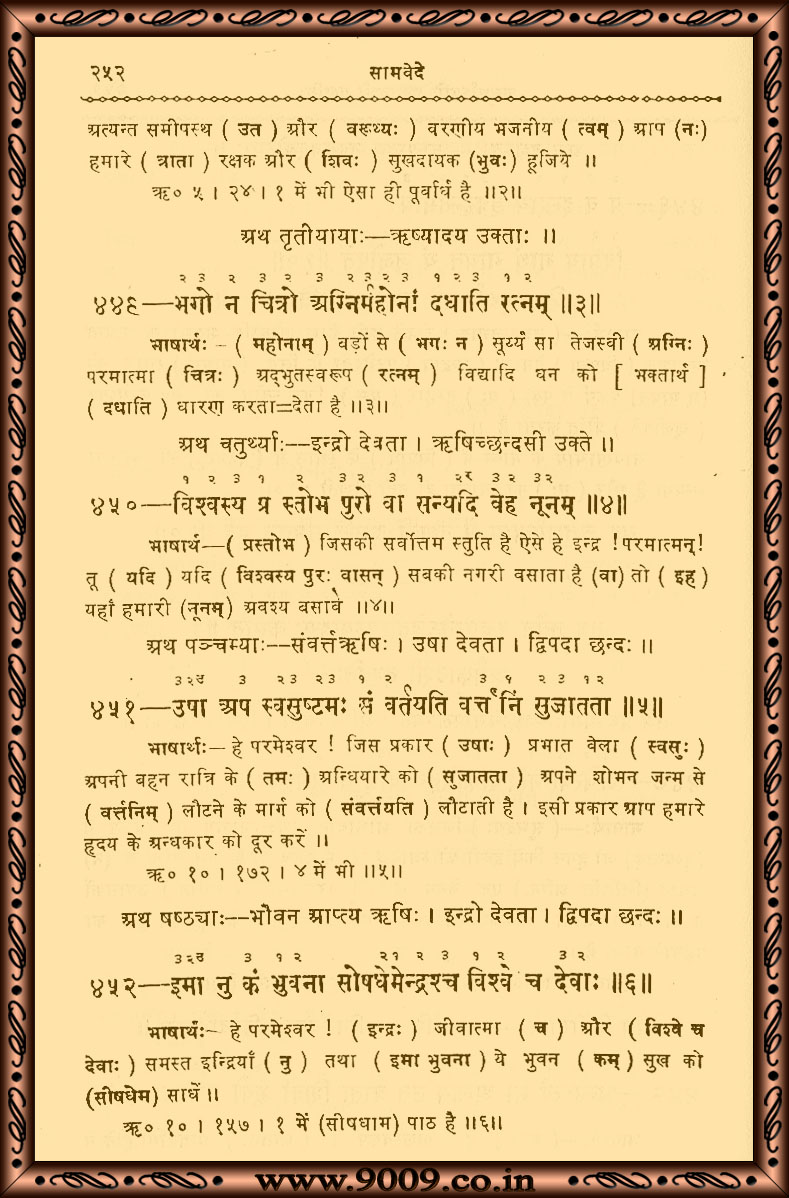 २५२ सामवेदे
अत्यन्त समीपस्थ ( उत ) और ( वरूथ्यः ) वरणीय भजनीय ( त्वम् ) आप (नः)
हमारे ( त्राता ) रक्षक और ( शिवः ) सुखदायक (भुवः) हूजिये ॥
ऋ० ५ । २४ । १ में भी ऐसा ही पूर्वार्ध है ॥२॥
अथ तृतीयायाः—ऋष्यादय उक्ताः ॥
२ ३ २ ३ २ ३ २ ३ २ ३ १ २ ३ १ २
४४९—भगो न चित्रो अग्निर्महोनां दधाति रत्नम् ॥३॥
भाषार्थः – ( महोनाम् ) बड़ों से ( भगः न ) सूर्य्य सा तेजस्वी ( अग्निः )
परमात्मा ( चित्रः ) अद्भुतस्वरूप ( रत्नम् ) विद्यादि धन को [ भक्तार्थ ]
( दधाति ) धारण करता=देता है ॥३॥
अथ चतुर्थ्याः—इन्द्रो देवता । ऋषिच्छन्दसी उक्ते ॥
१ २ ३ १ २ ३ २ ३ १ २र ३ २ ३२
४५०—विश्वस्य प्र स्तोभ पुरो वा सन्यदि वेह नूनम् ॥४॥
भाषार्थः—( प्रस्तोभ ) जिसकी सर्वोत्तम स्तुति है ऐसे हे इन्द्र !परमात्मन्!
तू ( यदि ) यदि ( विश्वस्य पुरः वासन् ) सबकी नगरी वसाता है (वा) तो ( इह )
यहाँ हमारी (नूनम्) अवश्य बसावें ॥४॥
अथ पञ्चम्याः—संवर्त्तऋषिः । उषा देवता । द्विपदा छन्दः ॥
३२उ ३ २३ २३ १ २ ३ १ २ ३ १२
४५१—उषा अप स्वसुष्टमः सं वर्तयति वर्त्तनिं सुजातता ॥५॥
भाषार्थः— हे परमेश्वर ! जिस प्रकार ( उषाः ) प्रभात वेला ( स्वसुः )
अपनी बहन रात्रि के ( तमः ) अन्धियारे को ( सुजातता ) अपने शोभन जन्म से
( वर्त्तनिम् ) लौटने के मार्ग को ( संवर्त्तयति ) लौटाती है । इसी प्रकार आप हमारे
हृदय के अन्धकार को दूर करें ॥
ऋ० १० । १७२ । ४ में भी ॥५॥
अथ षष्ठ्याः—भौवन आप्त्य ऋषिः । इन्द्रो देवता । द्विपदा छन्दः ॥
३२उ ३ १ २ २१ २ ३ १ २ ३ २
४५२—इमा नु कं भुवना सोषधेमेन्द्रश्च विश्वे च देवाः ॥६॥
भाषार्थः— हे परमेश्वर ! ( इन्द्रः ) जीवात्मा ( च ) और ( विश्वे च
देवाः ) समस्त इन्द्रियाँ ( नु ) तथा ( इमा भुवना ) ये भुवन ( कम् ) सुख को
(सीषधेम) साधें ॥
ऋ० १० । १५७ । १ में (सीषधाम) पाठ है ॥६॥
www.9009.co.in